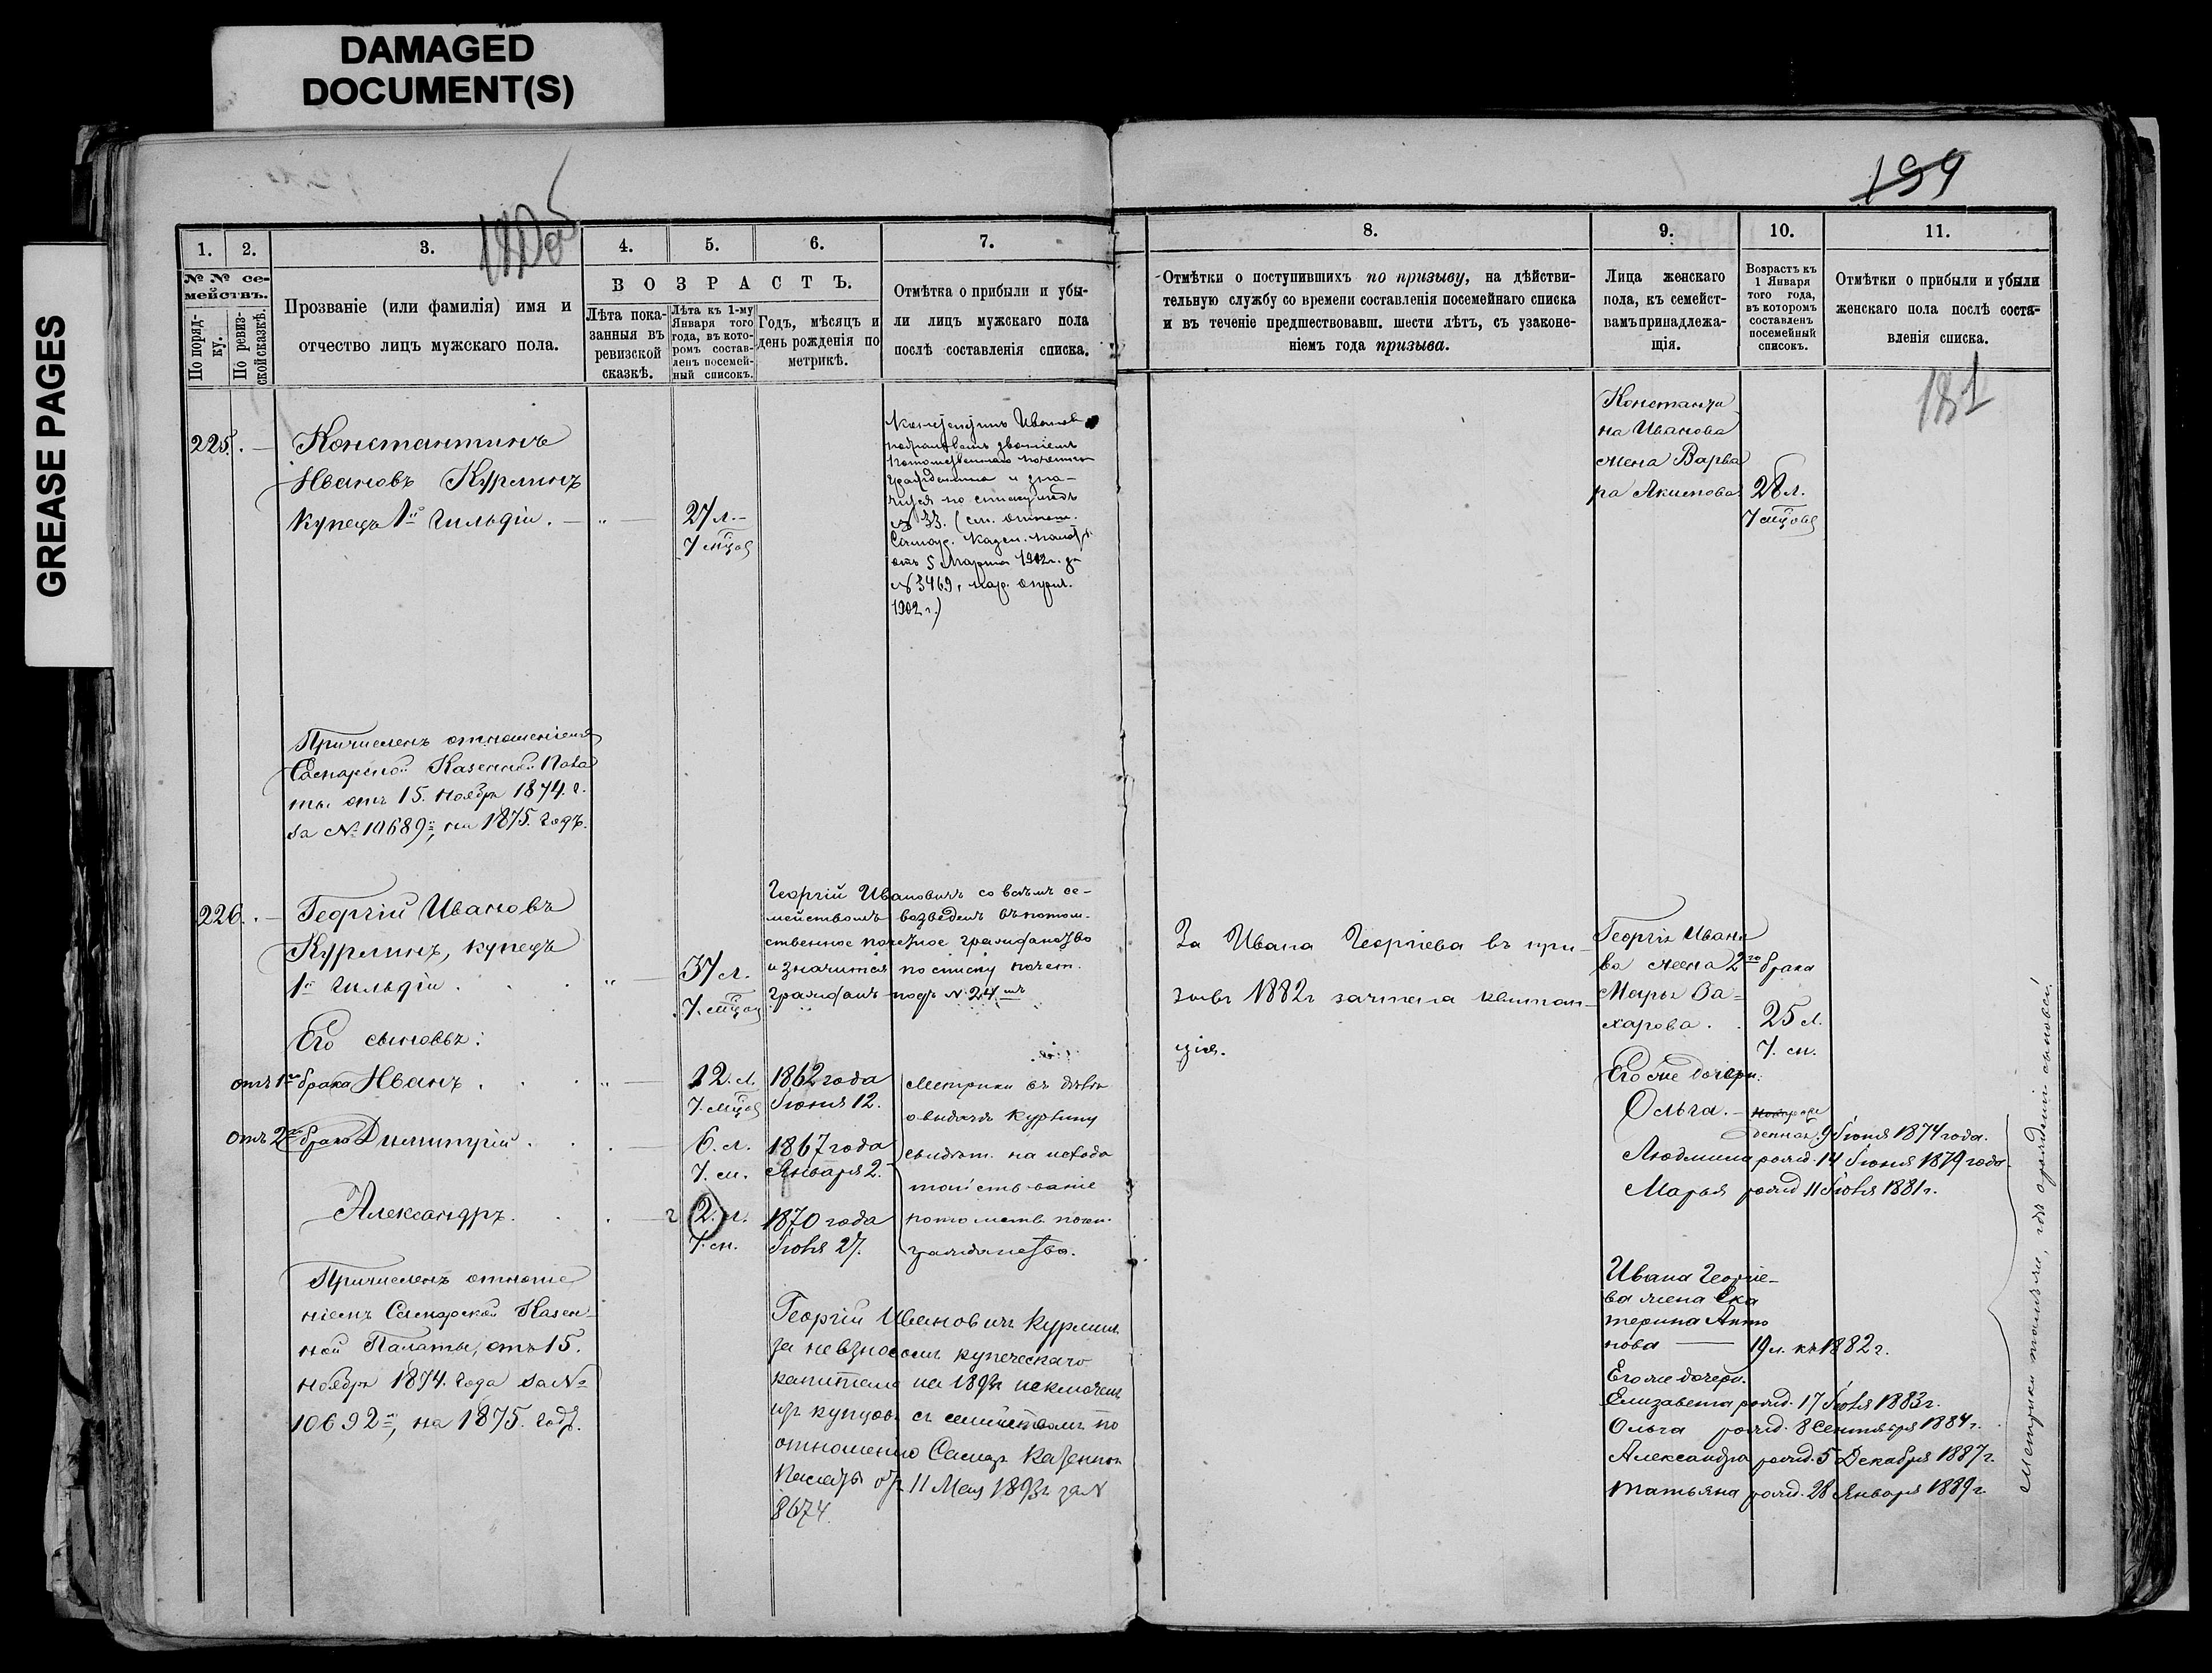 DAMAGED
DOCUMENT(S)
GREASE PAGES
199
181
1. 2. 3. 4. 5. 6. 7.
№ № се-
мействъ.
По поряд-
ку.
По ревиз-
ской сказкѣ.
Прозваніе (или фамилія) имя и
отчество лицъ мужскаго пола.
ВОЗРАСТЪ.
Лѣта пока-
занныя въ
ревизской
сказкѣ.
Лѣта къ 1-му
Января того
года, въ кото-
ромъ состав-
ленъ посемей-
ный списокъ.
Годъ, мѣсяцъ и
день рожденія по
метрикѣ.
Отмѣтка о прибыли и убы-
ли лицъ мужскаго пола
послѣ составленія списка.
225. Константинъ
Ивановъ Курлинъ
купецъ 1й гильдіи.
27 л.
7 мѣцов
Константинъ Иванов
Потомственнаго почетнаго
гражданина и зна-
чится по списку подъ
№ 33. (см. отнош.
Самар. Казен. Палаты
отъ 5 Марта 1902 г. за
№ 3469,
1902 г.)
Причисленъ отношеніемъ
Самарской Казенной Пала
ты отъ 15. ноября 1874. г.
за № 10689й, на 1875. годъ.
226. Георгій Ивановъ
Курлинъ, купецъ
1й гильдіи.
37 л.
7. мѣцов
Георгій Ивановичъ со всѣмъ се-
мействомъ возведенъ въ потом-
ственное почетное гражданство
и значится по списку почет.
гражданъ подъ № 24мъ
Его сыновья:
отъ 1го брака Иванъ.
12. л.
7. мѣцов
1862 года
Іюня 12.
отъ 2го брака Димитрій.
6. л.
7. м.
1867 года
Января 2.
Александръ.
2. л.
7. м.
1870 года
Іюля 27.
Метрики въ дѣлѣ
о выдачѣ Курлину
свидѣт. на исхода
тайствованіе
потомств. почет.
гражданства.
Причисленъ отноше
ніемъ Самарской Казен-
ной Палаты, отъ 15.
ноября 1874. года за №
10692й, на 1875. годъ.
Георгій Ивановичъ Курлинъ
за невзносомъ купеческаго
капитала на 1893 г исключенъ
изъ купцовъ съ семействомъ по
отношенію Самар Казенной
Палаты отъ 11 Мая 1893 г за №
8674.
8. 9. 10. 11.
Отмѣтки о поступившихъ по призыву, на дѣйстви-
тельную службу со времени составленія посемейнаго списка
и въ теченіе предшествовавш. шести лѣтъ, съ узаконе-
ніемъ года призыва.
Лица женскаго
пола, къ семейст-
вамъ принадлежа-
щія.
Возрастъ къ
1 Января
того года,
въ которомъ
составленъ
посемейный
списокъ.
Отмѣтки о прибыли и убыли
женскаго пола послѣ соста-
вленія списка.
Константи
на Иванова
жена Варва
ра Акимова
28 л.
7 мѣцовъ
За Ивана Георгіева въ при-
зывъ 1882 г зачтена квитан-
ція.
Георгія Ивано
ва жена 2го брака
Марья За-
харова.
25 л.
7. м.
Его же дочери:
Ольга.
9 Іюня 1874 года.
Людмила рожд. 14 Іюня 1879 года.
Марья рожд 11 Іюля 1881 г.
Ивана Георгіе-
ва жена Ека
терина Анто
нова 19 л. къ 1882 г.
Его же дочери.
Елизавета рожд. 17 Іюля 1883 г.
Ольга рожд. 8 Сентября 1884 г.
Александра рожд. 5 Декабря 1887 г.
Татьяна рожд. 28 Января 1889 г.
Метрики тамъ же, гдѣ о рожденіи сыновей.